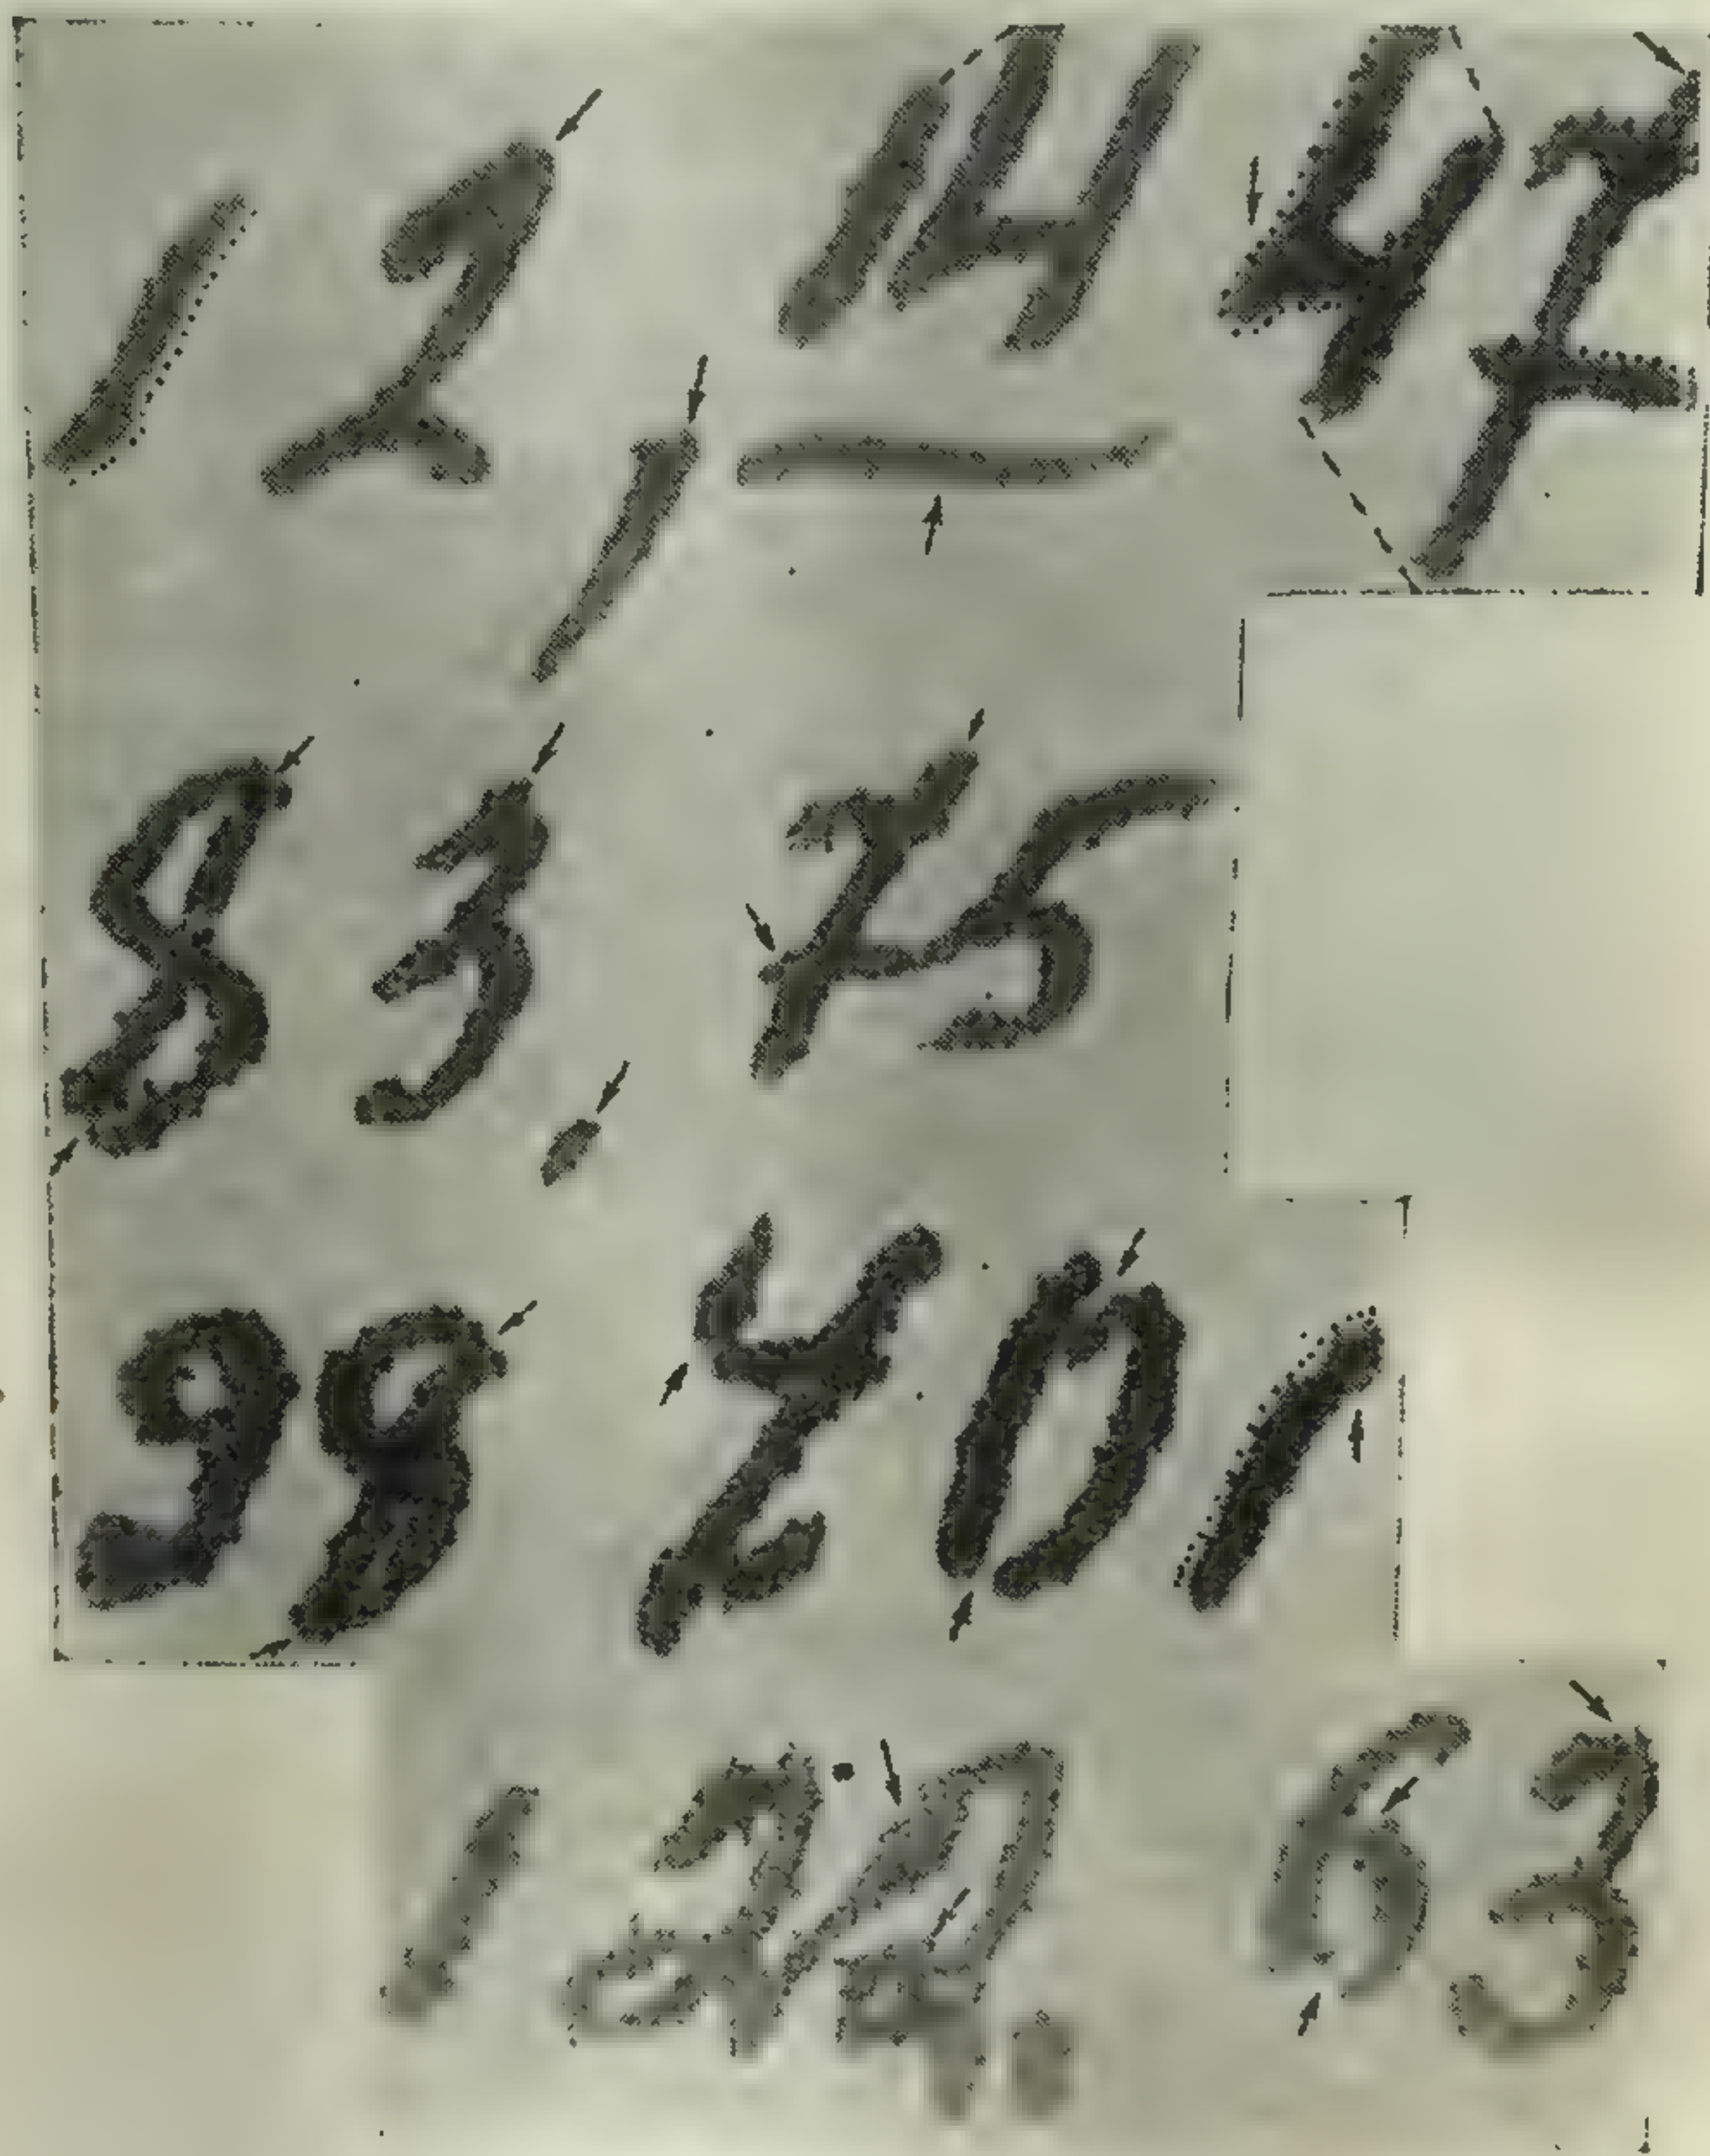 12, — 14 47
83. 75
98 201
122. 63